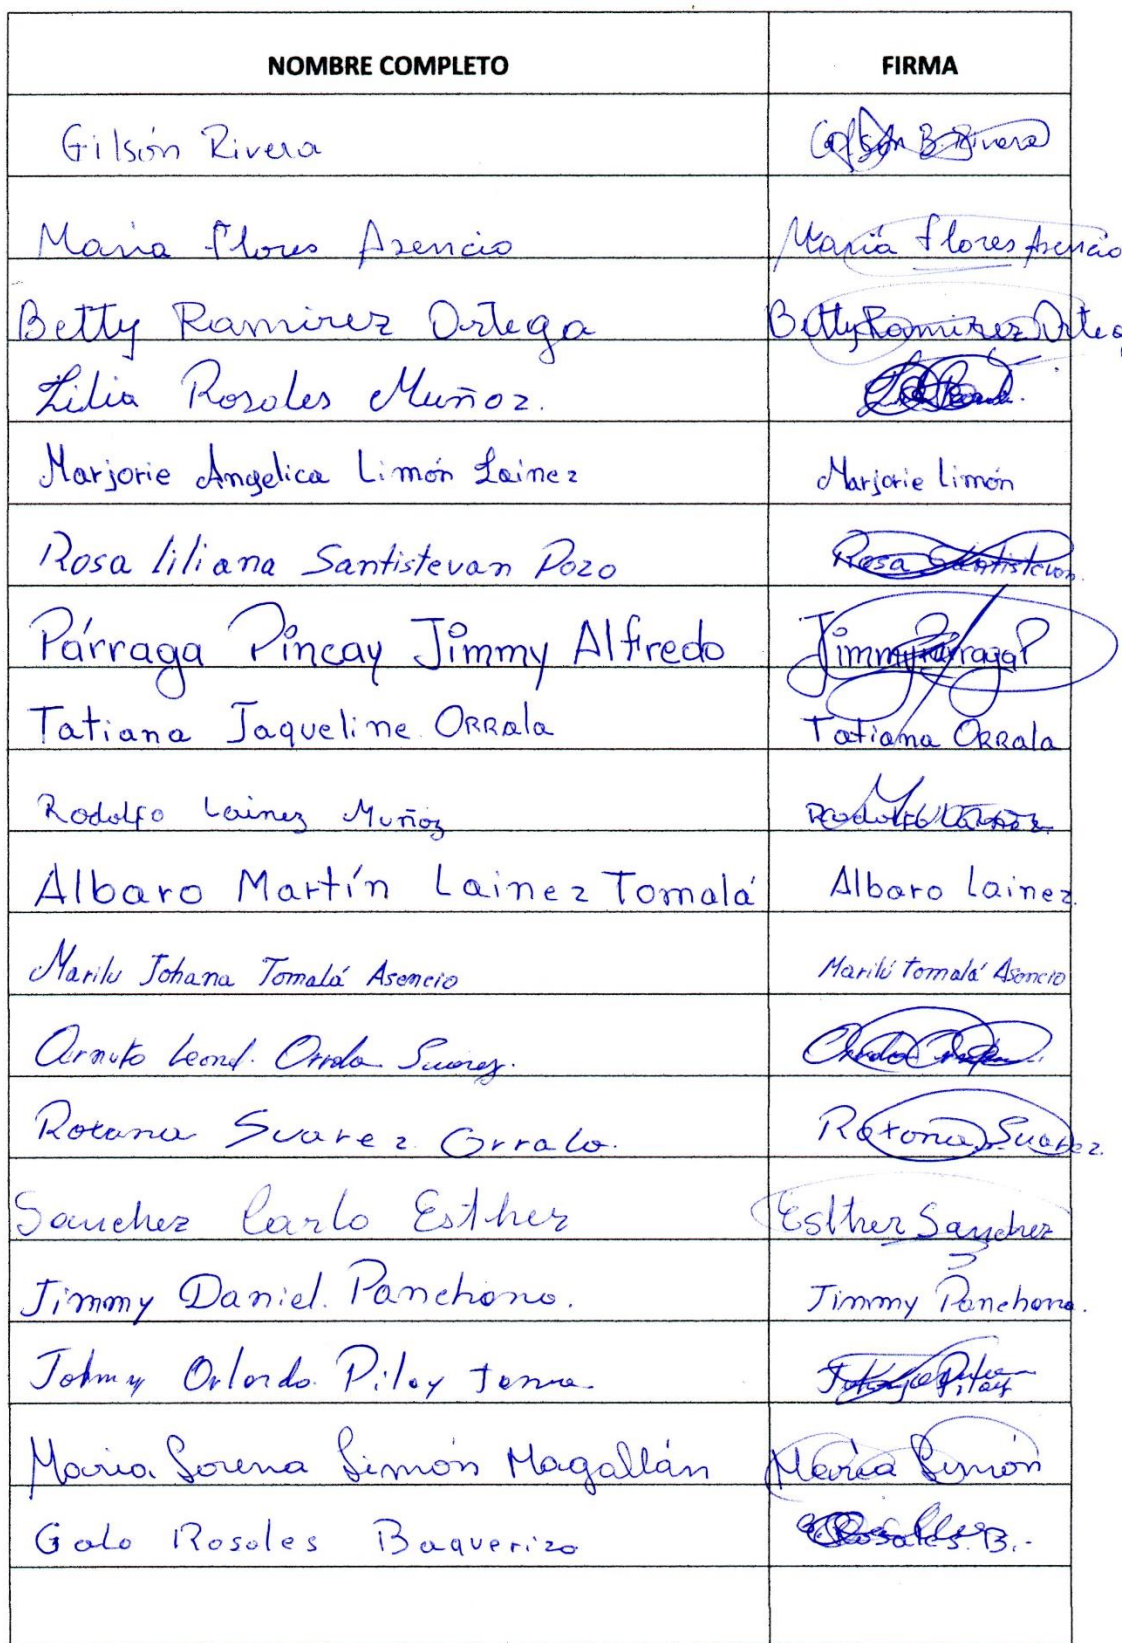 NOMBRE COMPLETO FIRMA
Gilsón Rivera B. Rivera
Maria Flores Asencio María Flores Asencio
Betty Ramirez Ortega Betty Ramirez Orteg
Lilia Rosales Muñoz.
Marjorie Angelica Limón Lainez Marjorie Limón
Rosa liliana Santistevan Pozo Rosa Santistevan.
Párraga Pincay Jimmy Alfredo Jimmy Párraga P
Tatiana Jaqueline ORRala Tatiana ORRala
Rodolfo Lainez Muñoz Rodolfo Lainez
Albaro Martín Lainez Tomalá Albaro Lainez.
Marilu Johana Tomalá Asencio Marilú Tomalá Asencio
Orrala Suarez.
Roxana Suarez Orrala. Roxana Suarez.
Sanchez Carlo Esther Esther Sanchez
Jimmy Daniel. Panchana. Jimmy Panchana.
Johnny Orlando Pilay Pilay
Maria Lorena Limón Magallán María Limón
Galo Rosales Baquerizo Rosales B.-